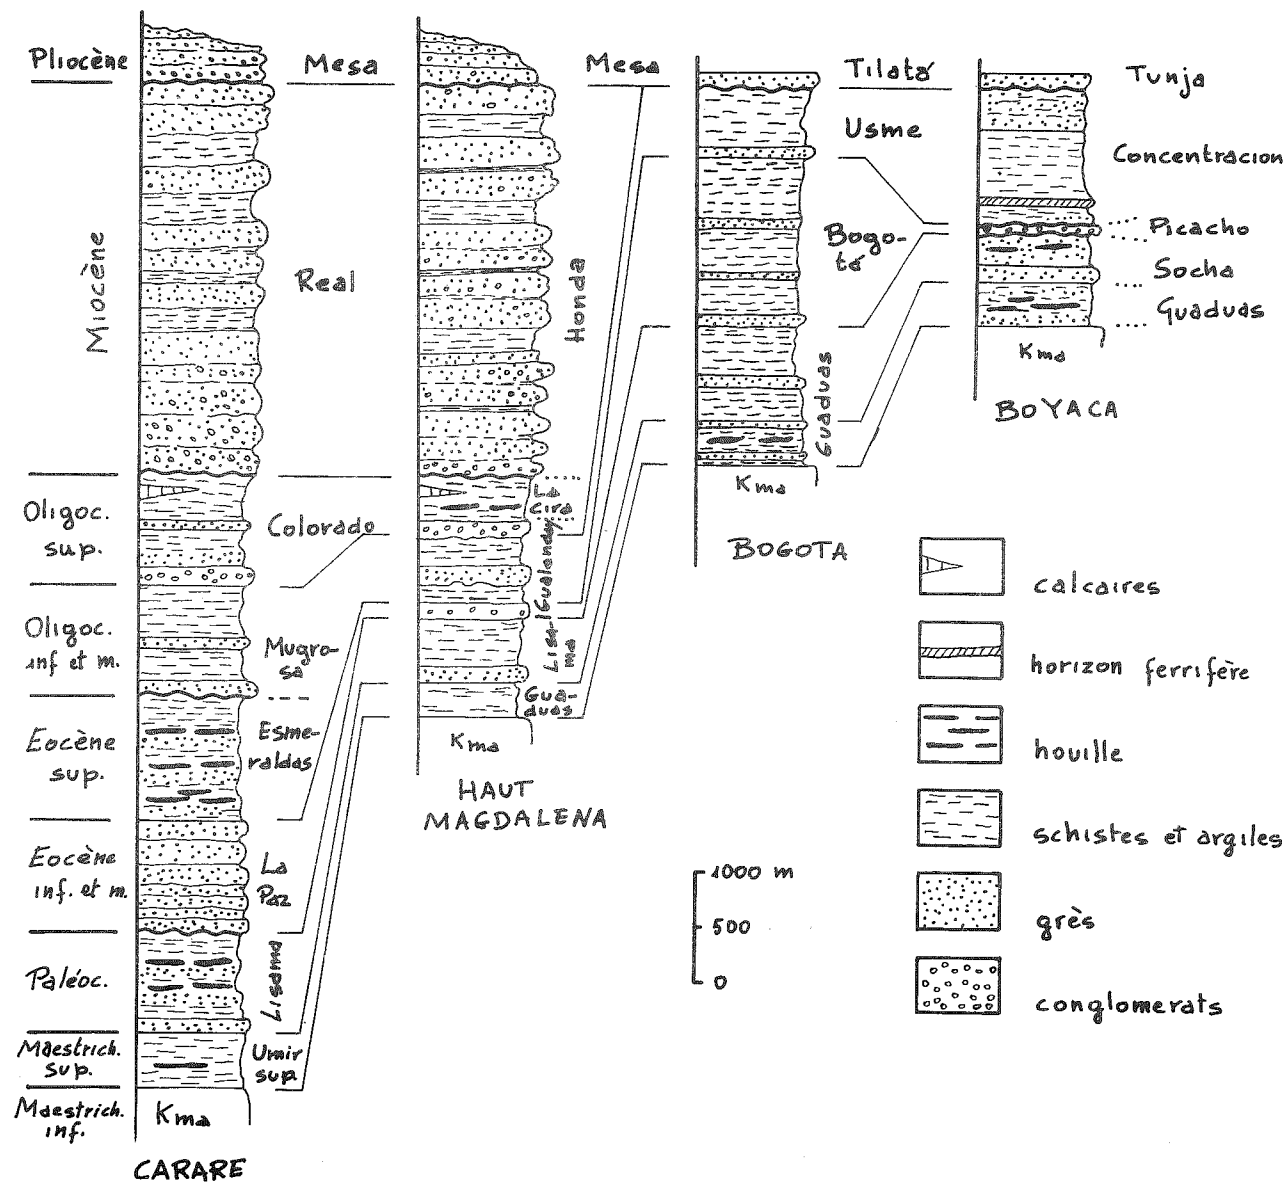 Pliocène
Miocène
Oligoc.
sup.
Oligoc.
inf et m.
Eocène
sup.
Eocène
inf. et m.
Paléoc.
Maestrich.
sup.
Maestrich.
inf.
Mesa
Real
Colorado
Mugro-
sa
Esme-
raldas
La
Paz
Lisama
Umir
sup
Kma
CARARE
Mesa
Honda
La
Cira
Gualanday
Lisa-
ma
Gua-
duas
Kma
HAUT
MAGDALENA
Tilatá
Usme
Bogo-
tá
Guaduas
Kma
BOGOTA
Tunja
Concentracion
Picacho
Socha
Guaduas
Kma
BOYACA
calcaires
horizon ferrifère
houille
schistes et argiles
grès
conglomerats
1000 m
500
0